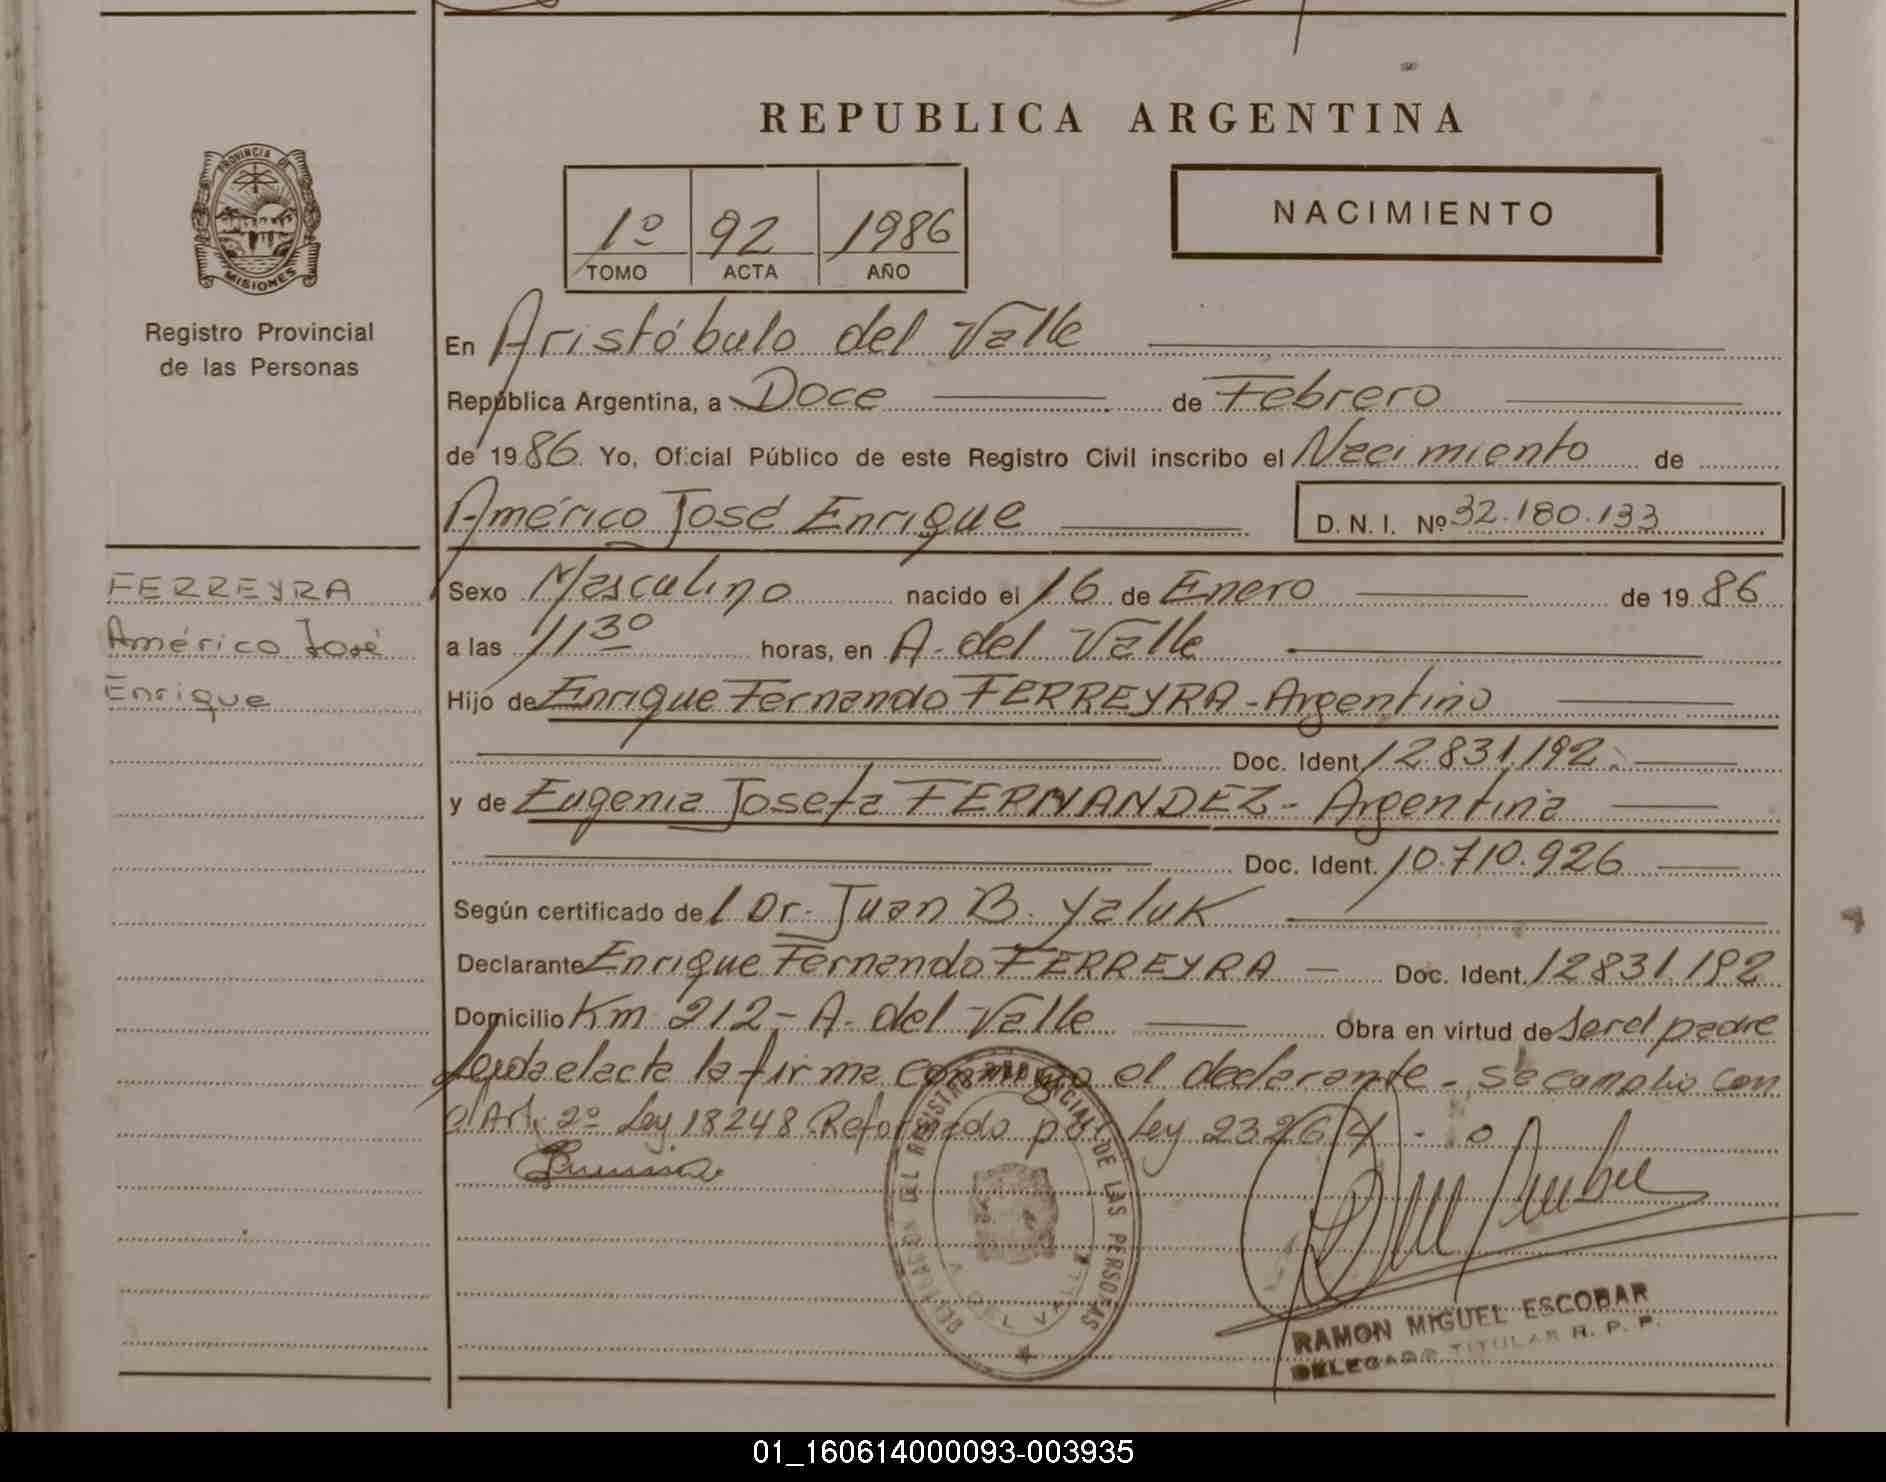 REPUBLICA ARGENTINA
PROVINCIA DE
MISIONES
Registro Provincial
de las Personas
1º 92 1986
TOMO ACTA AÑO
NACIMIENTO
En Aristóbulo del Valle
República Argentina, a Doce de Febrero
de 1986. Yo, Oficial Público de este Registro Civil inscribo el Nacimiento de
Américo José Enrique D. N. I. Nº 32.180.133
FERREYRA
Américo José
Enrique
Sexo Masculino nacido el 16 de Enero de 1986
a las 11³⁰ horas, en A. del Valle
Hijo de Enrique Fernando FERREYRA - Argentino
Doc. Ident. 12831.192.
y de Eugenia Josefa FERNANDEZ - Argentina
Doc. Ident. 10.710.926
Según certificado del Dr. Juan B. Yaluk
Declarante Enrique Fernando FERREYRA - Doc. Ident. 12831.192
Domicilio Km 212 - A. del Valle Obra en virtud de ser el padre
Leyda el acta la firma conmigo el declarante - Se cumplio con
el Art. 2º Ley 18248 Reformado por Ley 23264 -
DEL REGISTRO PROVINCIAL DE LAS PERSONAS
RAMON MIGUEL ESCOBAR
DELEGADO TITULAR R. P. P.
01_160614000093-003935